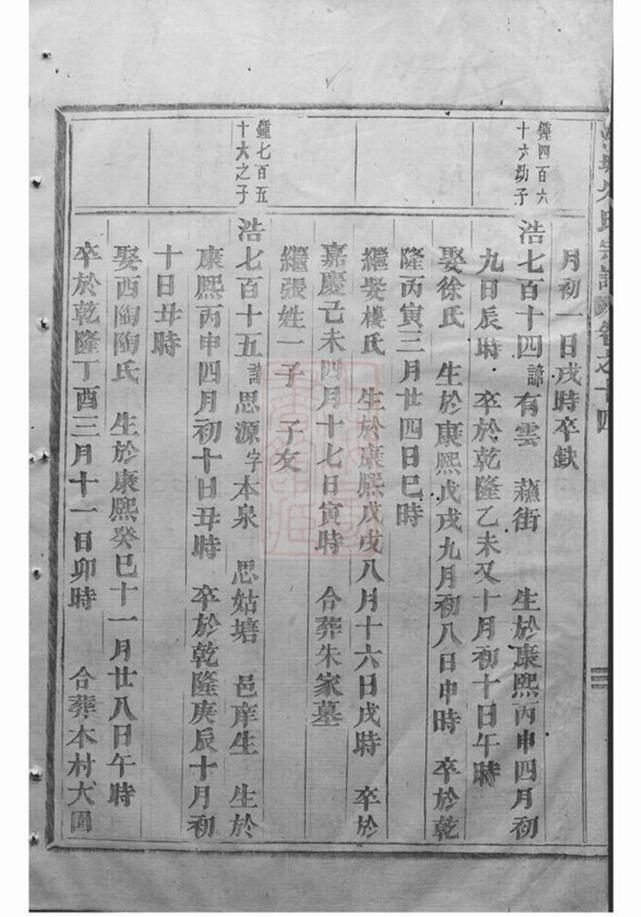 氏宗譜 卷之十四
月初一日戌時卒缺
鍾四百六
十六幼子
浩七百十四諱有雲 蘸街 生於康熙丙申四月初
九日辰時 卒於乾隆乙未又十月初十日午時
娶徐氏 生於康熙戊戌九月初八日申時 卒於乾
隆丙寅三月廿四日巳時
繼娶樓氏 生於康熙戊戌八月十六日戌時 卒於
嘉慶己未四月十七日寅時 合葬朱家墓
繼張姓一子 子友
鍾七百五
十六之子
浩七百十五諱思源字本泉 思姑塘 邑庠生 生於
康熙丙申四月初十日丑時 卒於乾隆庚辰十月初
十日丑時
娶西陶陶氏 生於康熙癸巳十一月廿八日午時
卒於乾隆丁酉三月十一日卯時 合葬木村大園